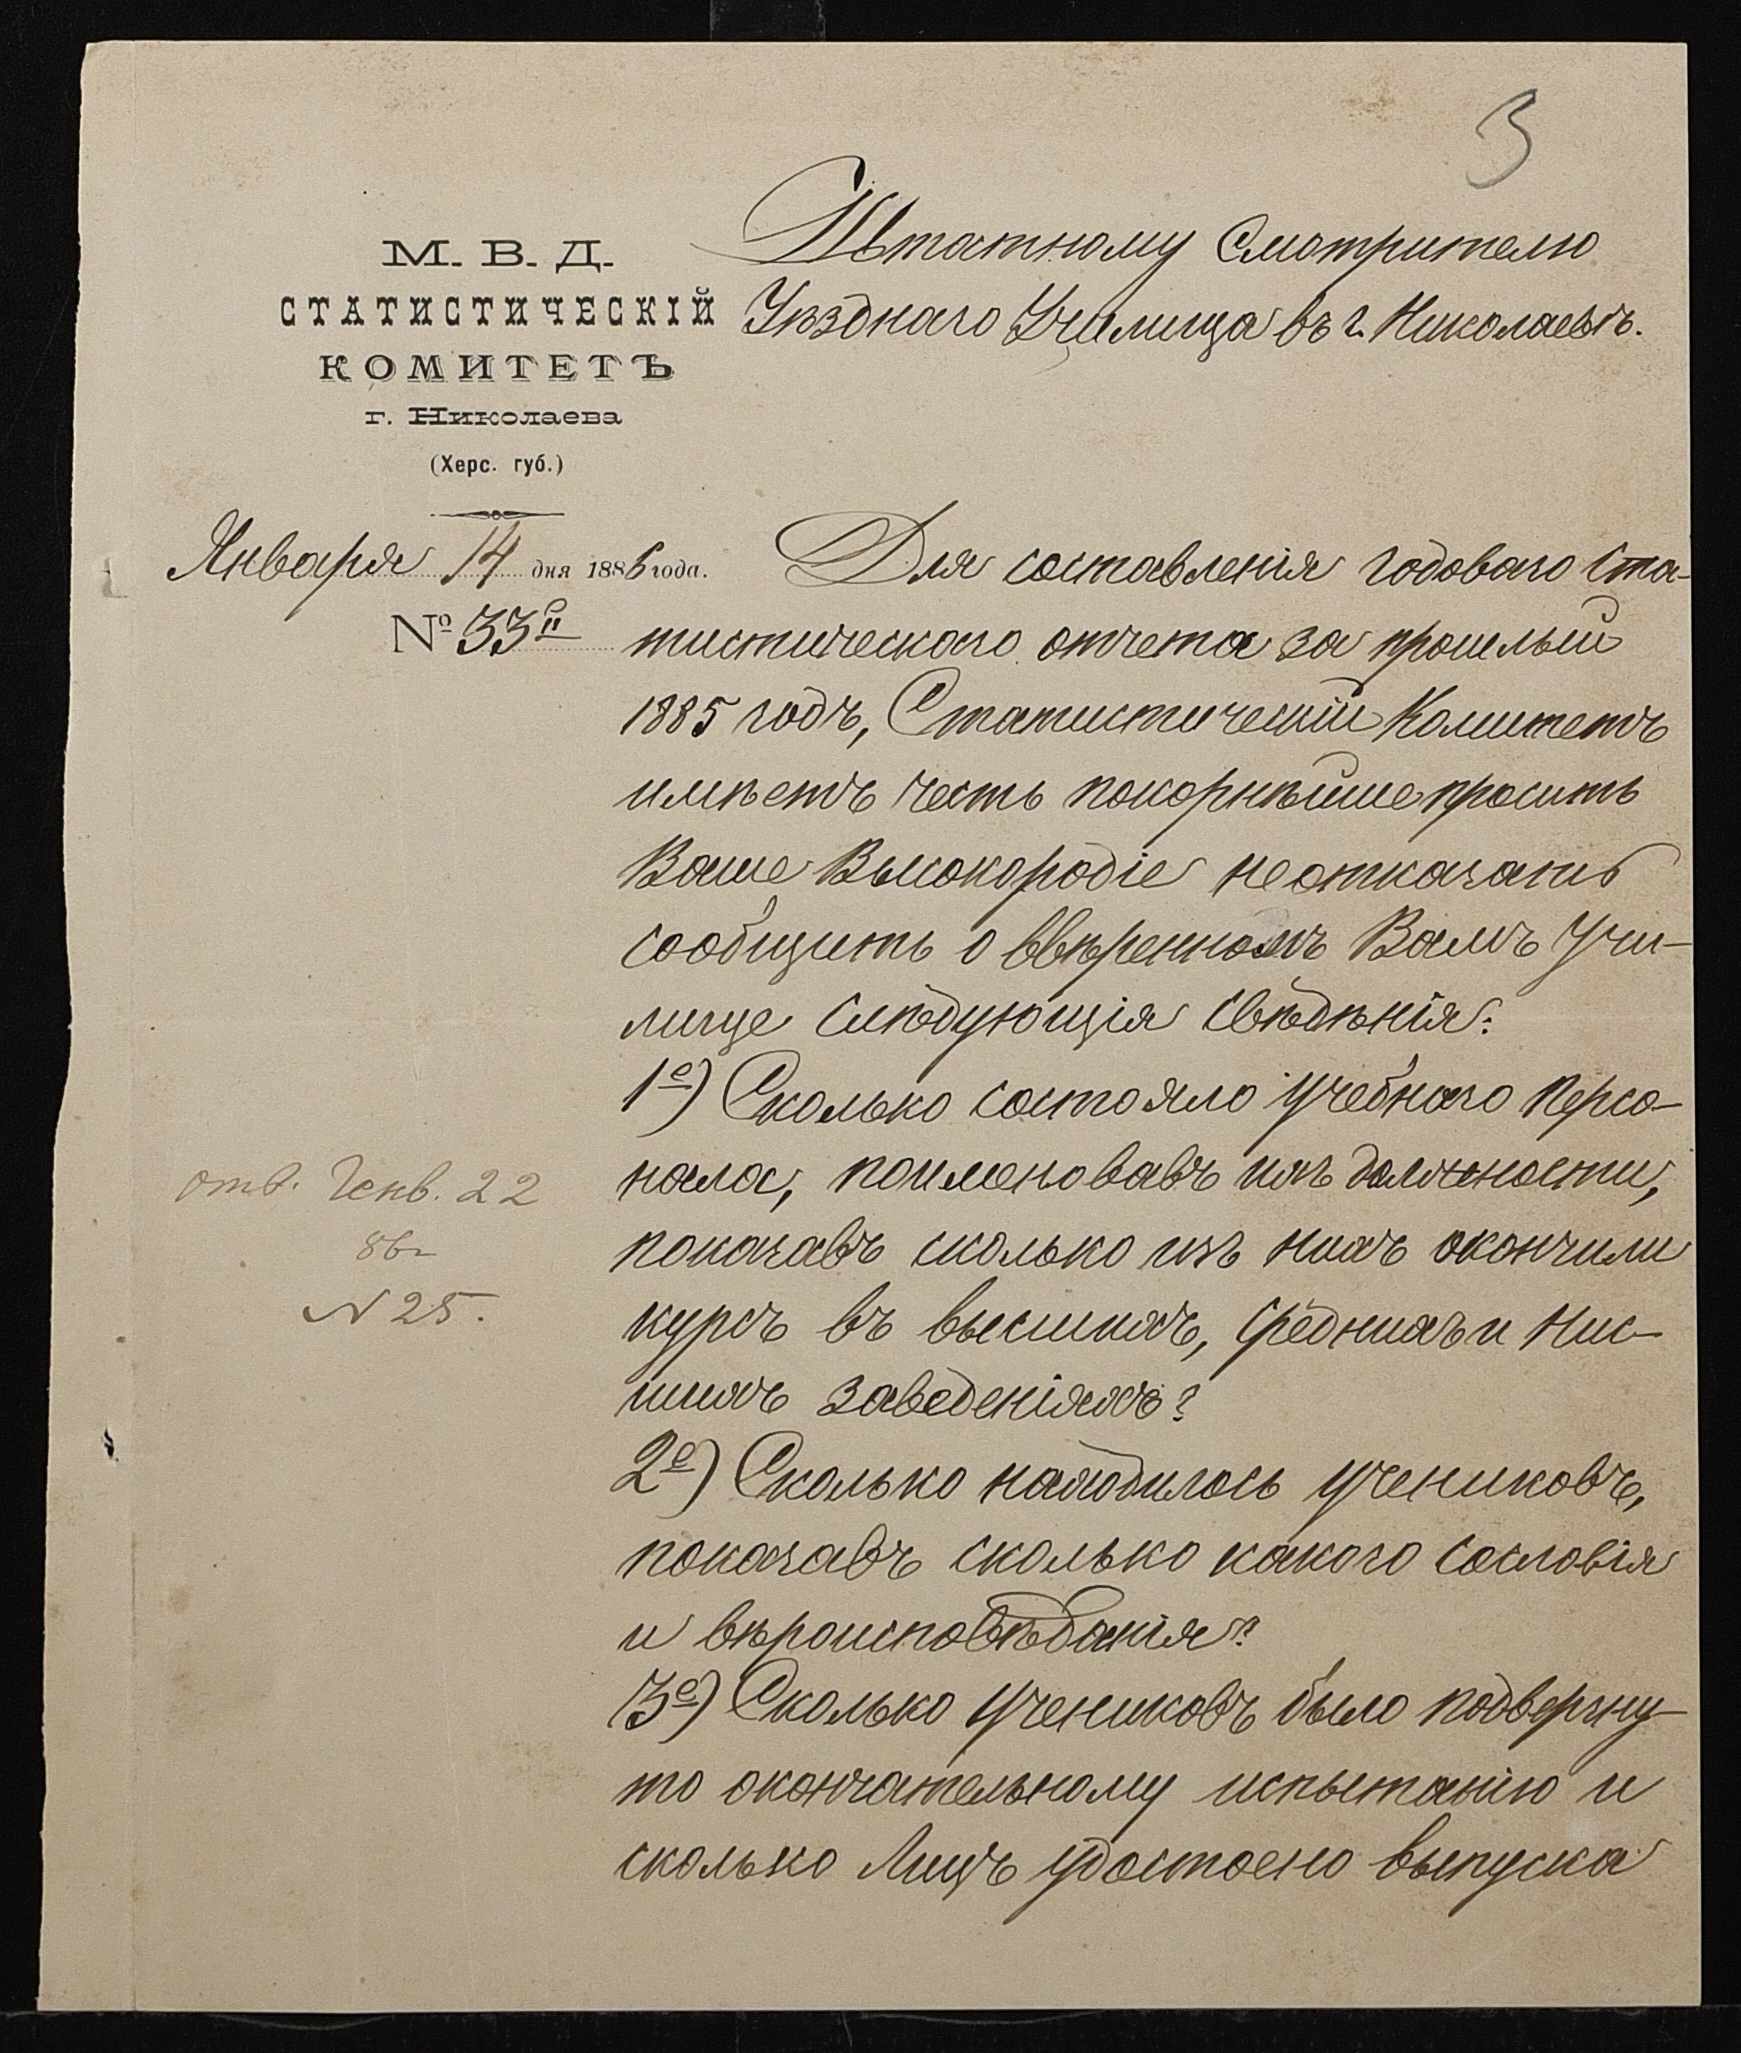 3
М. В. Д.
СТАТИСТИЧЕСКІЙ
КОМИТЕТЪ
г. Николаева
(Херс. губ.)
Января 14 дня 1886 года.
№ 33
Штатному Смотрителю
Уѣзднаго Училища въ г. Николаевѣ.
Для составленія годоваго Ста-
тистическаго отчета за прошлый
1885 годъ, Статистическій Комитетъ
имѣетъ честь покорнѣйше просить
Ваше Высокородіе не отказать
сообщить о ввѣренномъ Вамъ Учи-
лище слѣдующія свѣдѣнія:
1е) Сколько состояло учебнаго персо-
нала, поименовавъ ихъ должности,
показавъ сколько изъ нихъ окончили
курсъ въ высшихъ, среднихъ и нис-
шихъ заведеніяхъ?
2е) Сколько находилось учениковъ,
показавъ сколько какого сословія
и вѣроисповѣданія?
3е) Сколько учениковъ было подвергну-
то окончательному испытанію и
сколько лицъ удостоено выпуска
отв. Генв. 22
86 г
N 25.